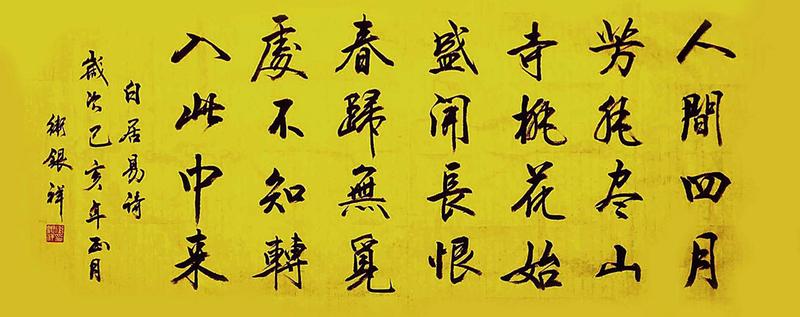 人間四月
芳菲尽山
寺桃花始
盛開長恨
春歸無覓
處不知轉
入此中来
白居易詩
歲次己亥年正月
銀祥